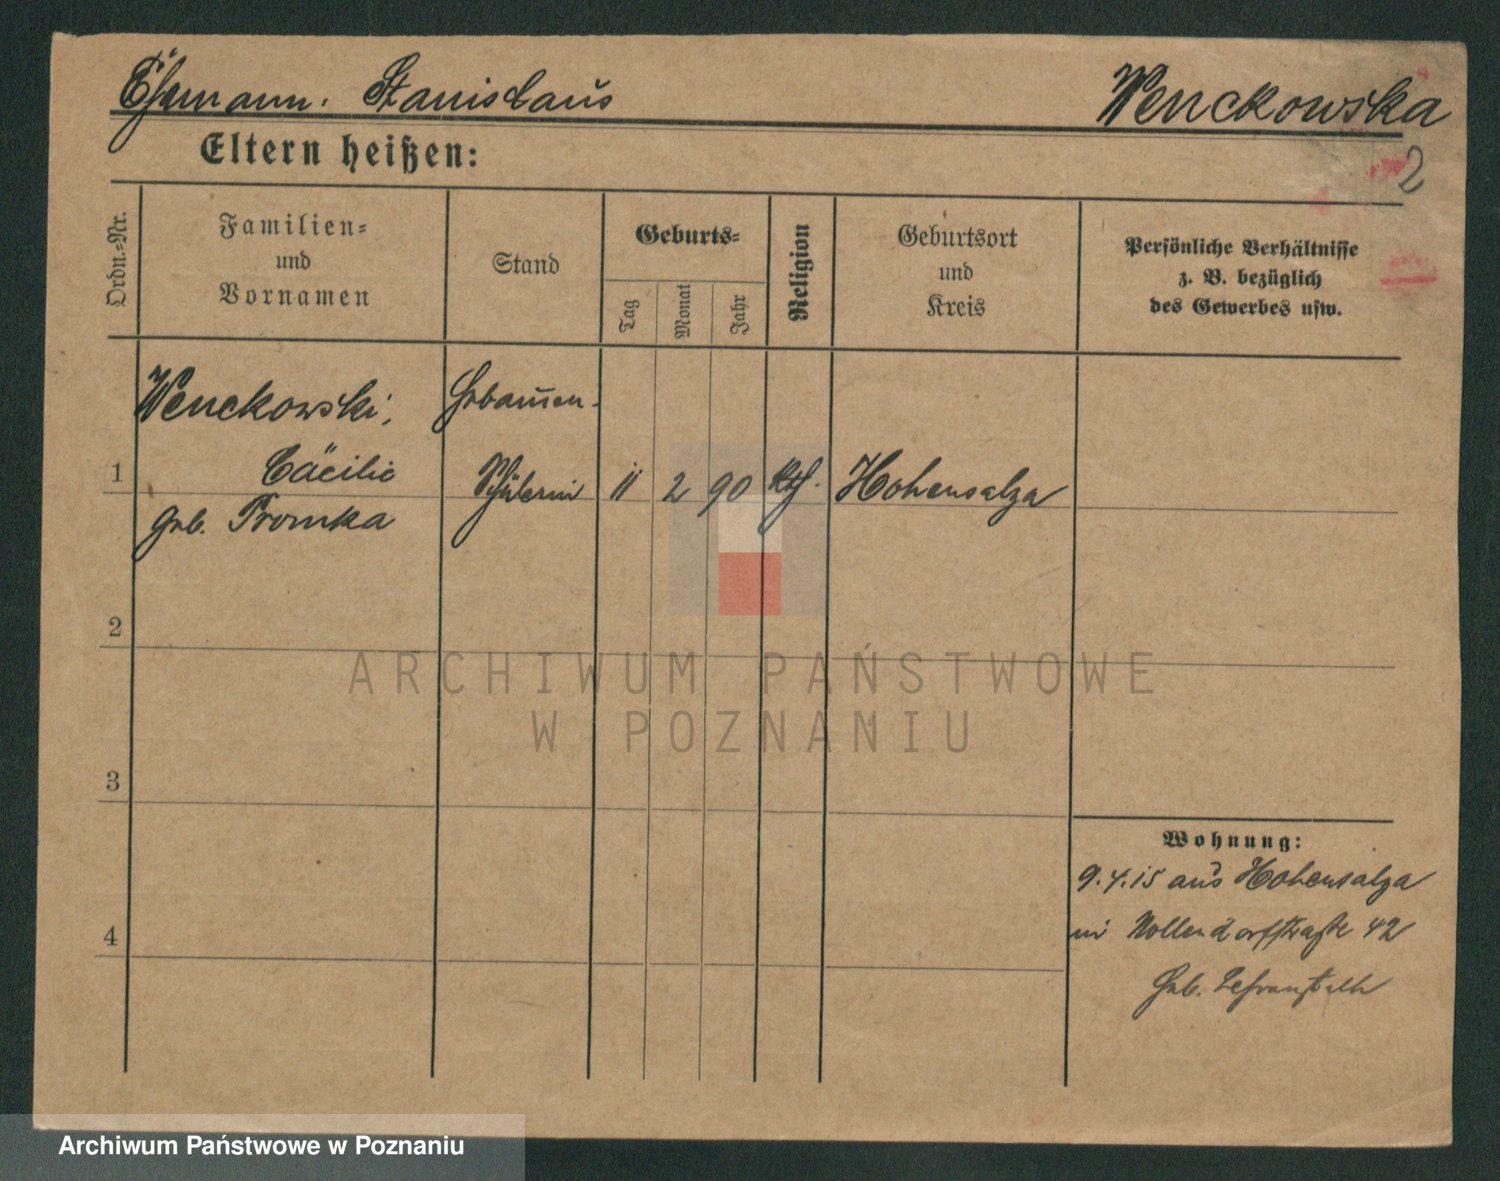 Ehemann. Stanislaus Wenckowska
Eltern heißen:
2
Ordn.=Nr.
Familien=
und
Vornamen
Stand
Geburts=
Tag
Monat
Jahr
Religion
Geburtsort
und
Kreis
Persönliche Verhältnisse
z. B. bezüglich
des Gewerbes usw.
Wenckowski, Hebammen-
1 Cäcilie Schülerin 11 2 90 kth. Hohensalza
geb. Promka
2
3
4
Wohnung:
9.4.15 aus Hohensalza
in Nollendorfstraße 42
Heb. Lehranstalt
ARCHIWUM PAŃSTWOWE
W POZNANIU
Archiwum Państwowe w Poznaniu